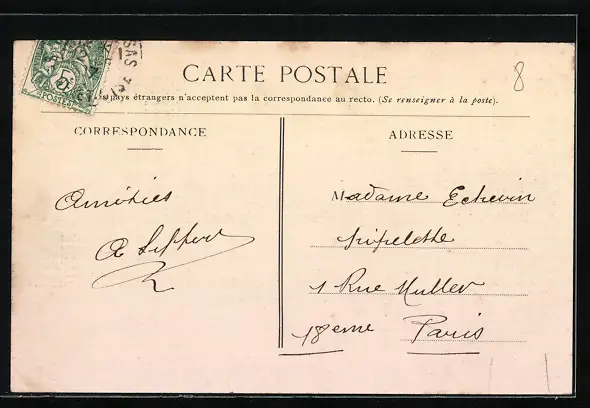 5c
POSTES
CARTE POSTALE
8
pays étrangers n'acceptent pas la correspondance au recto. (Se renseigner à la poste).
CORRESPONDANCE
ADRESSE
Amitiés
Madame Echevin
1 Rue Muller
18eme Paris